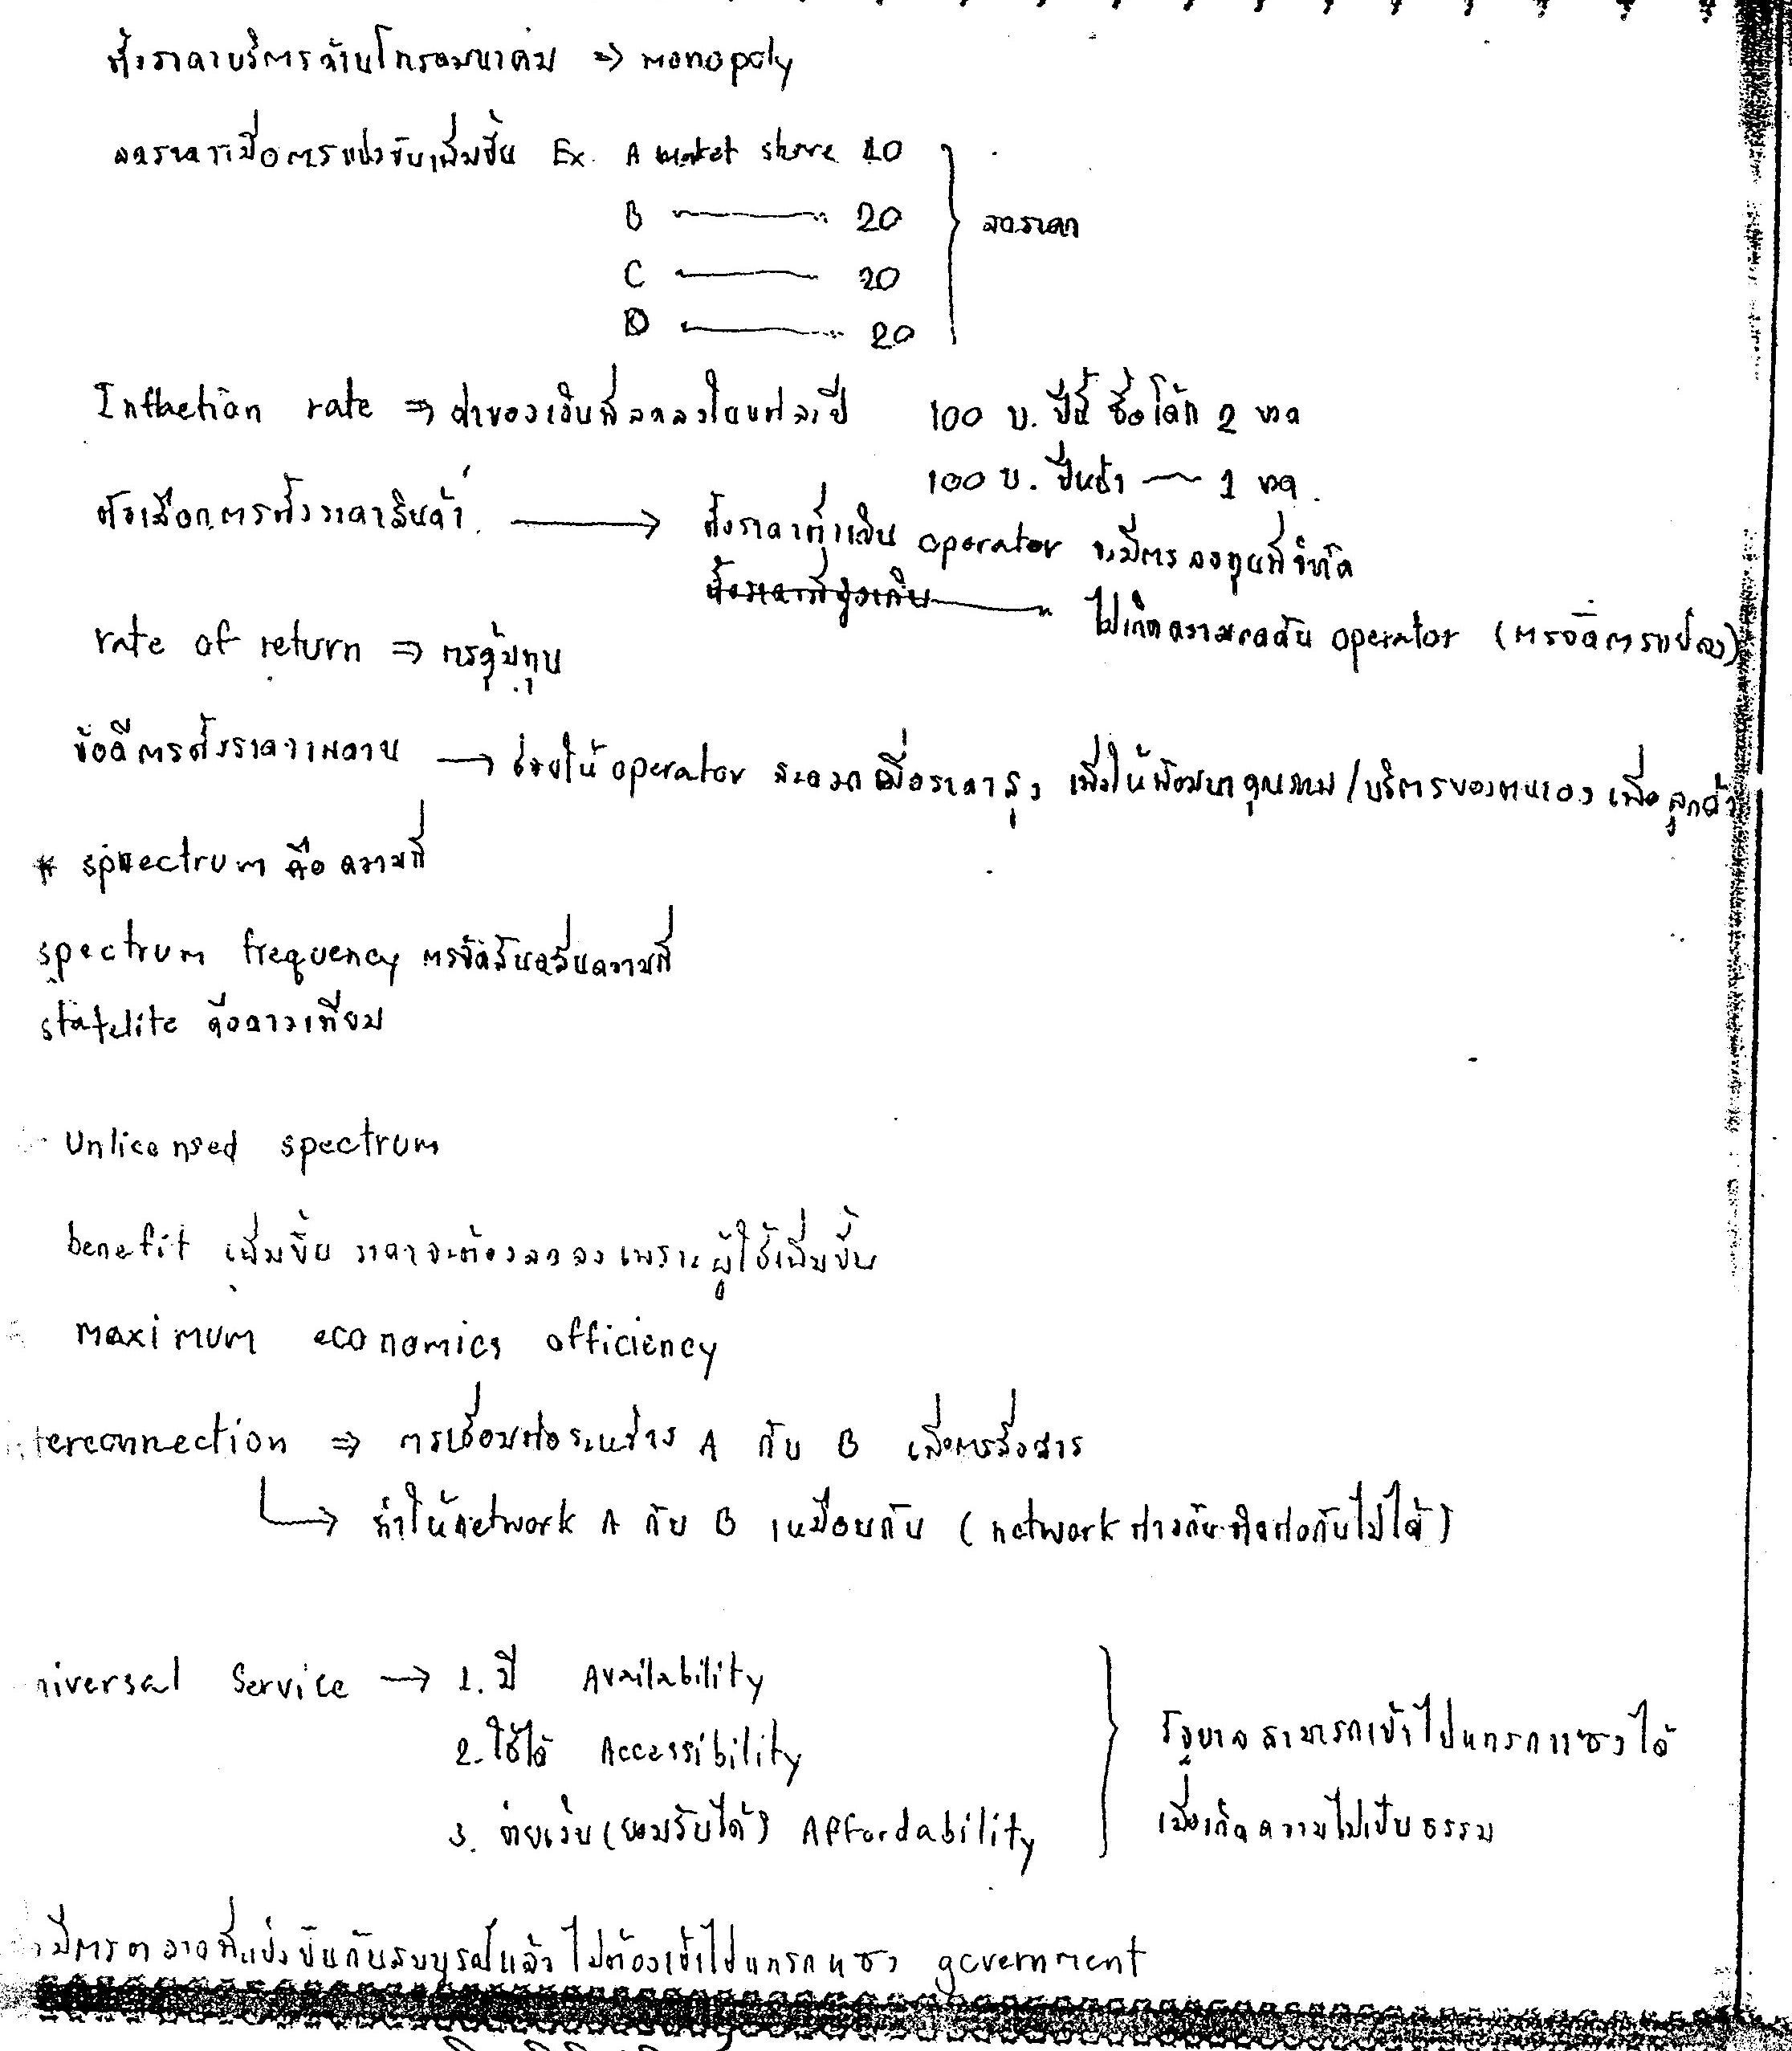 ตั้งราคาบริการด้านโทรคมนาคม ⇒ monopoly
ลดราคาเมื่อการแข่งขันเพิ่มขึ้น Ex. A market share 40
B 20
C 20 } ลดราคา
D 20
Inflaction rate ⇒ ค่าของเงินที่ลดลงในแต่ละปี 100 บ. ปีนี้ ซื้อโค้ก 2 ขวด
100 บ. ปีหน้า 1 ขวด
ตัวเลือกการตั้งราคาสินค้า → ตั้งราคาต่ำเกิน operator จะมีการลงทุนที่จำกัด
ตั้งราคาที่สูงเกิน ไม่เกิดความกดดัน operator (การจัดการแย่ลง)
rate of return ⇒ การคุ้มทุน
ข้อดีการตั้งราคาเพดาน → ช่วยให้ operator สะดวก เมื่อราคาสูง เพื่อให้พัฒนาคุณภาพ/บริการของตนเอง เพื่อลูกค้า
* spectrum คือ ความถี่
spectrum frequency การจัดสันคลื่นความถี่
statelite คือดาวเทียม
Unlicensed spectrum
benefit เพิ่มขึ้น ราคาจะต้องลดลงเพราะผู้ใช้เพิ่มขึ้น
maximum economics efficiency
terconnection ⇒ การเชื่อมต่อระหว่าง A กับ B เพื่อการสื่อสาร
→ ทำให้ network A กับ B เหมือนกัน (network ต่างกันติดต่อกันไม่ได้)
niversal Service → 1. มี Availability
2. ใช้ได้ Accessibility } รัฐบาลสามารถเข้าไปแทรกแซงได้
3. จ่ายเงิน (ยอมรับได้) Affordability เมื่อเกิดความไม่เป็นธรรม
มีการตลาดที่แข่งขันกันสมบูรณ์แล้ว ไม่ต้องเข้าไปแทรกแซง government